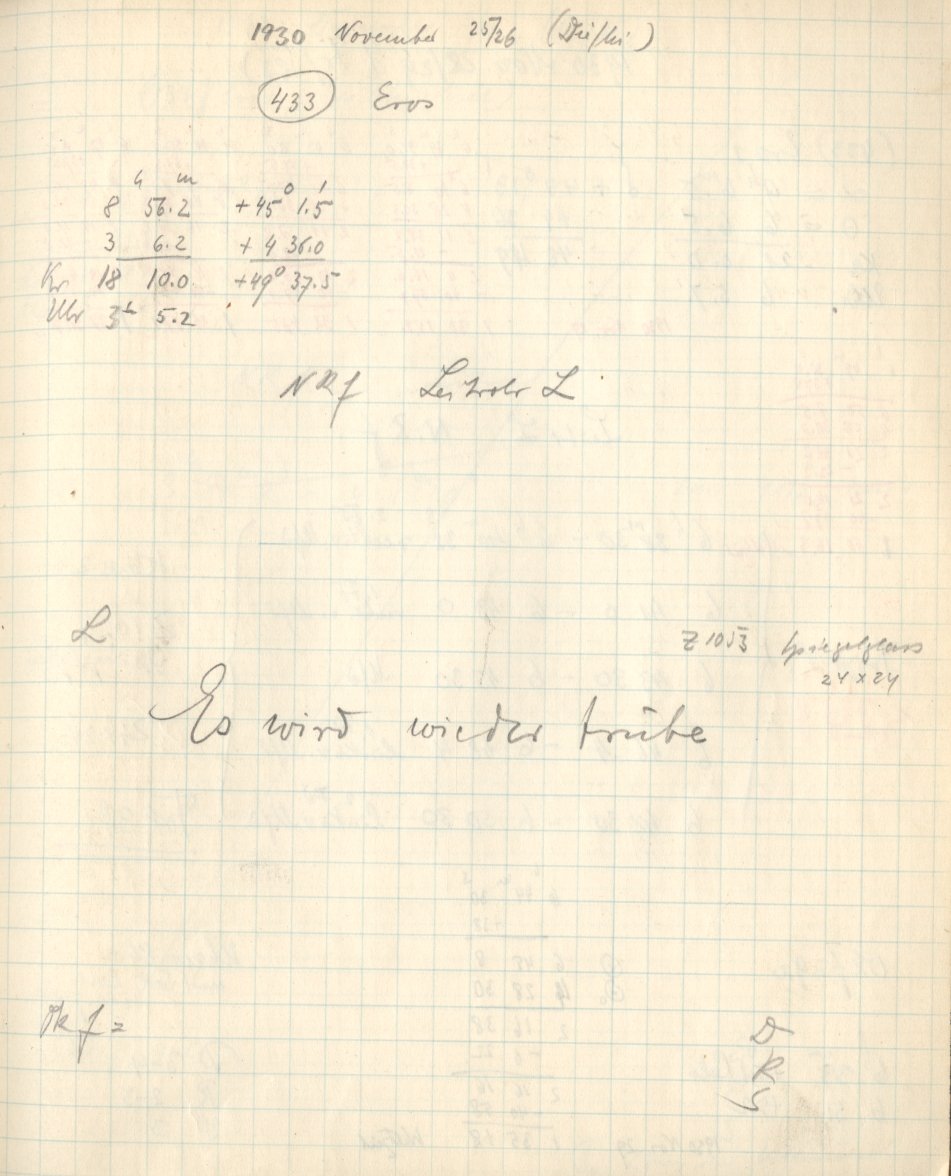 1930 November 25/26 (Di/Mi)
433 Eros
h m ° '
8 56.2 +45 1.5
3 6.2 + 4 36.0
Kr 18 10.0 +49° 37.5
Uhr 3 5.2
NRf Leitrohr L
L
Z 1053 Spiegelglass
24 x 24
Es wird wieder trübe
f =
D
R